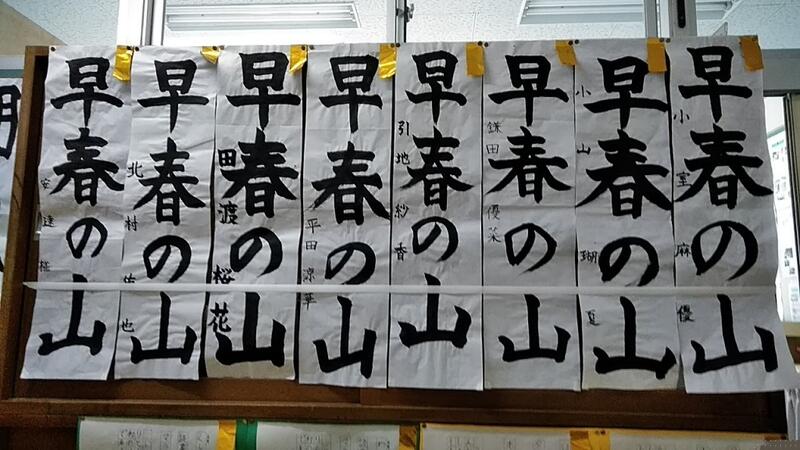 早春の山
小室麻優
早春の山
小山瑚夏
早春の山
鎌田優菜
早春の山
引地紗香
早春の山
平田涼華
早春の山
田渡桜花
早春の山
北村佑也
早春の山
安達椛